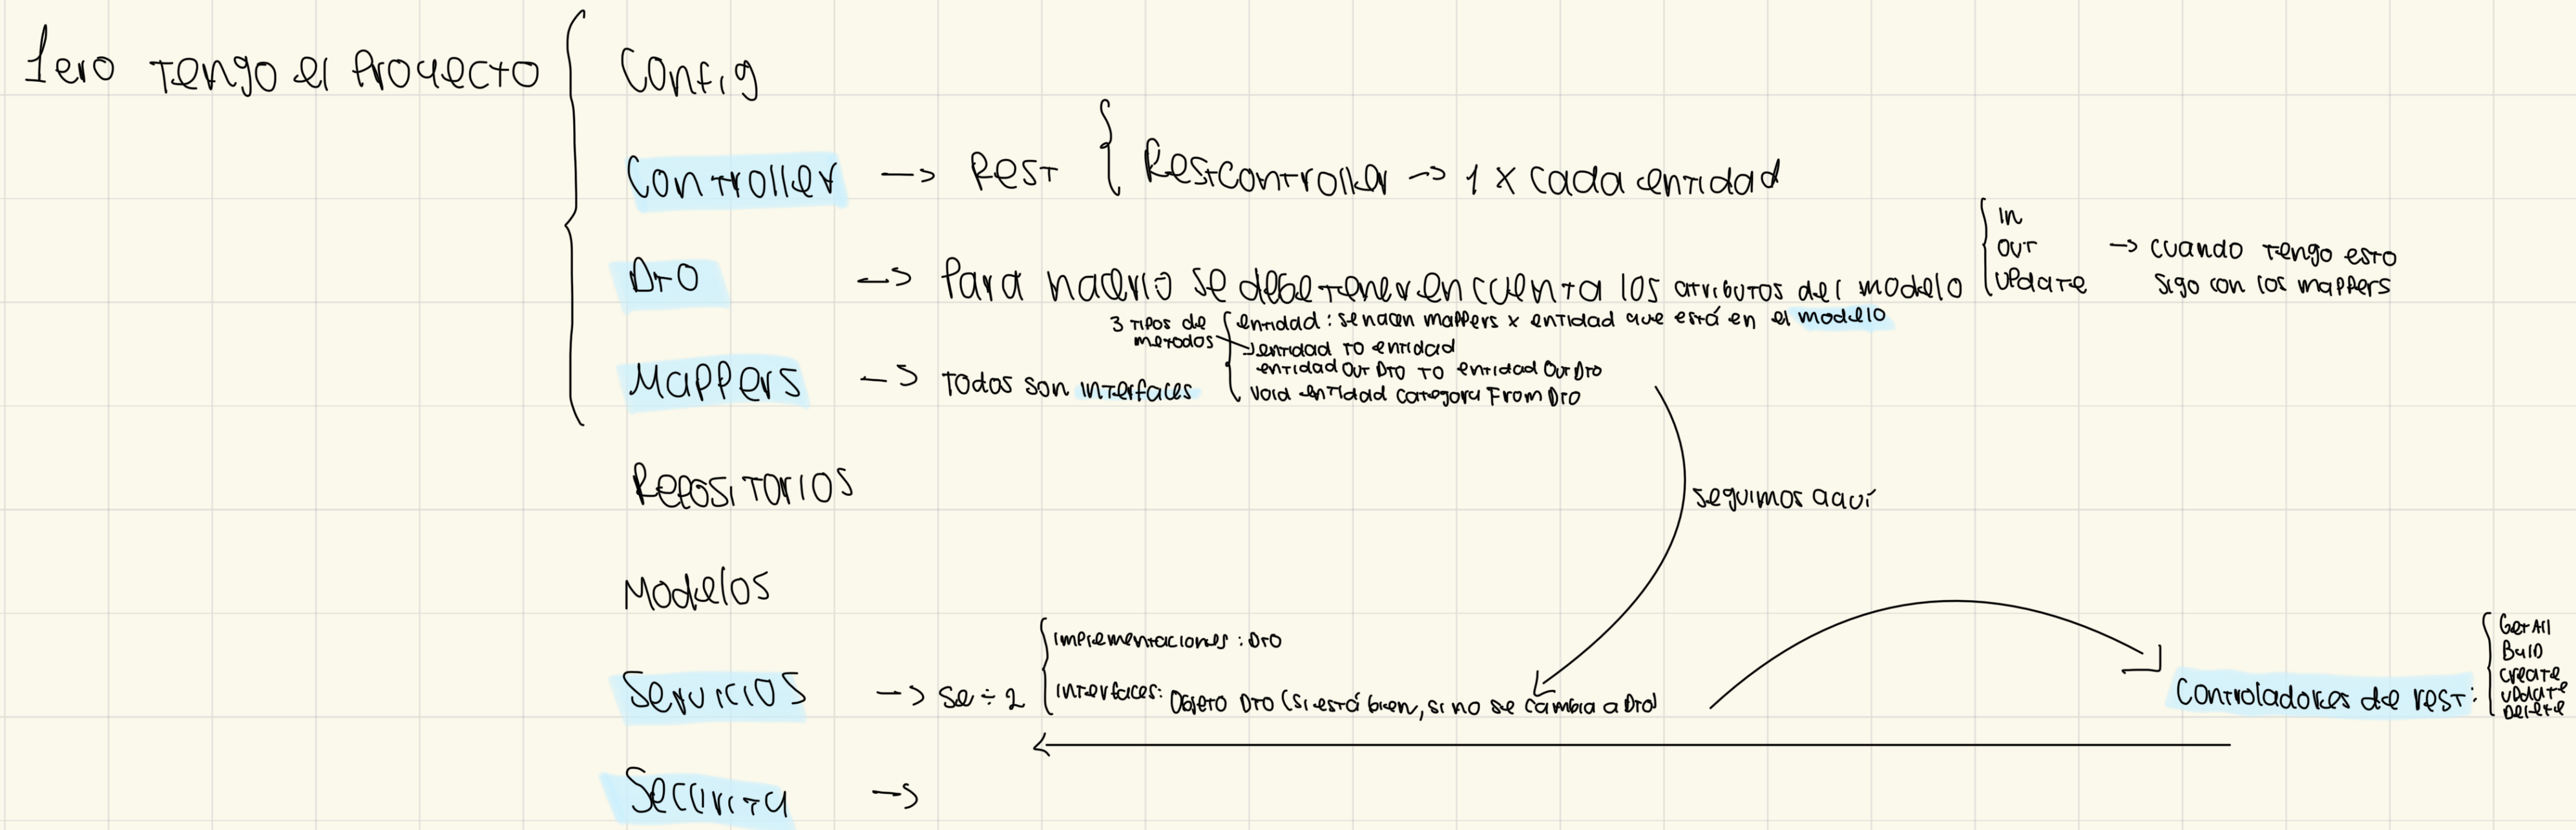 1ero Tengo el Proyecto
Config
Controller -> REST { RestController -> 1 x cada entidad
DTO -> Para hacerlo se debe tener en cuenta los atributos del modelo
In
Out
Update
-> cuando tengo esto
sigo con los mappers
Mappers -> Todos son interfaces
3 tipos de
metodos
entidad: se hacen mappers x entidad que está en el modelo
entidad to entidad
entidad Out DTO to entidad Out DTO
void entidad From DTO
Repositorios
seguimos aquí
Modelos
Servicios -> se ÷ 2
implementaciones: DTO
interfaces: Objeto DTO (si está bien, si no se cambia a DTO)
Controladores de rest:
Get All
ById
create
update
Delete
Security ->